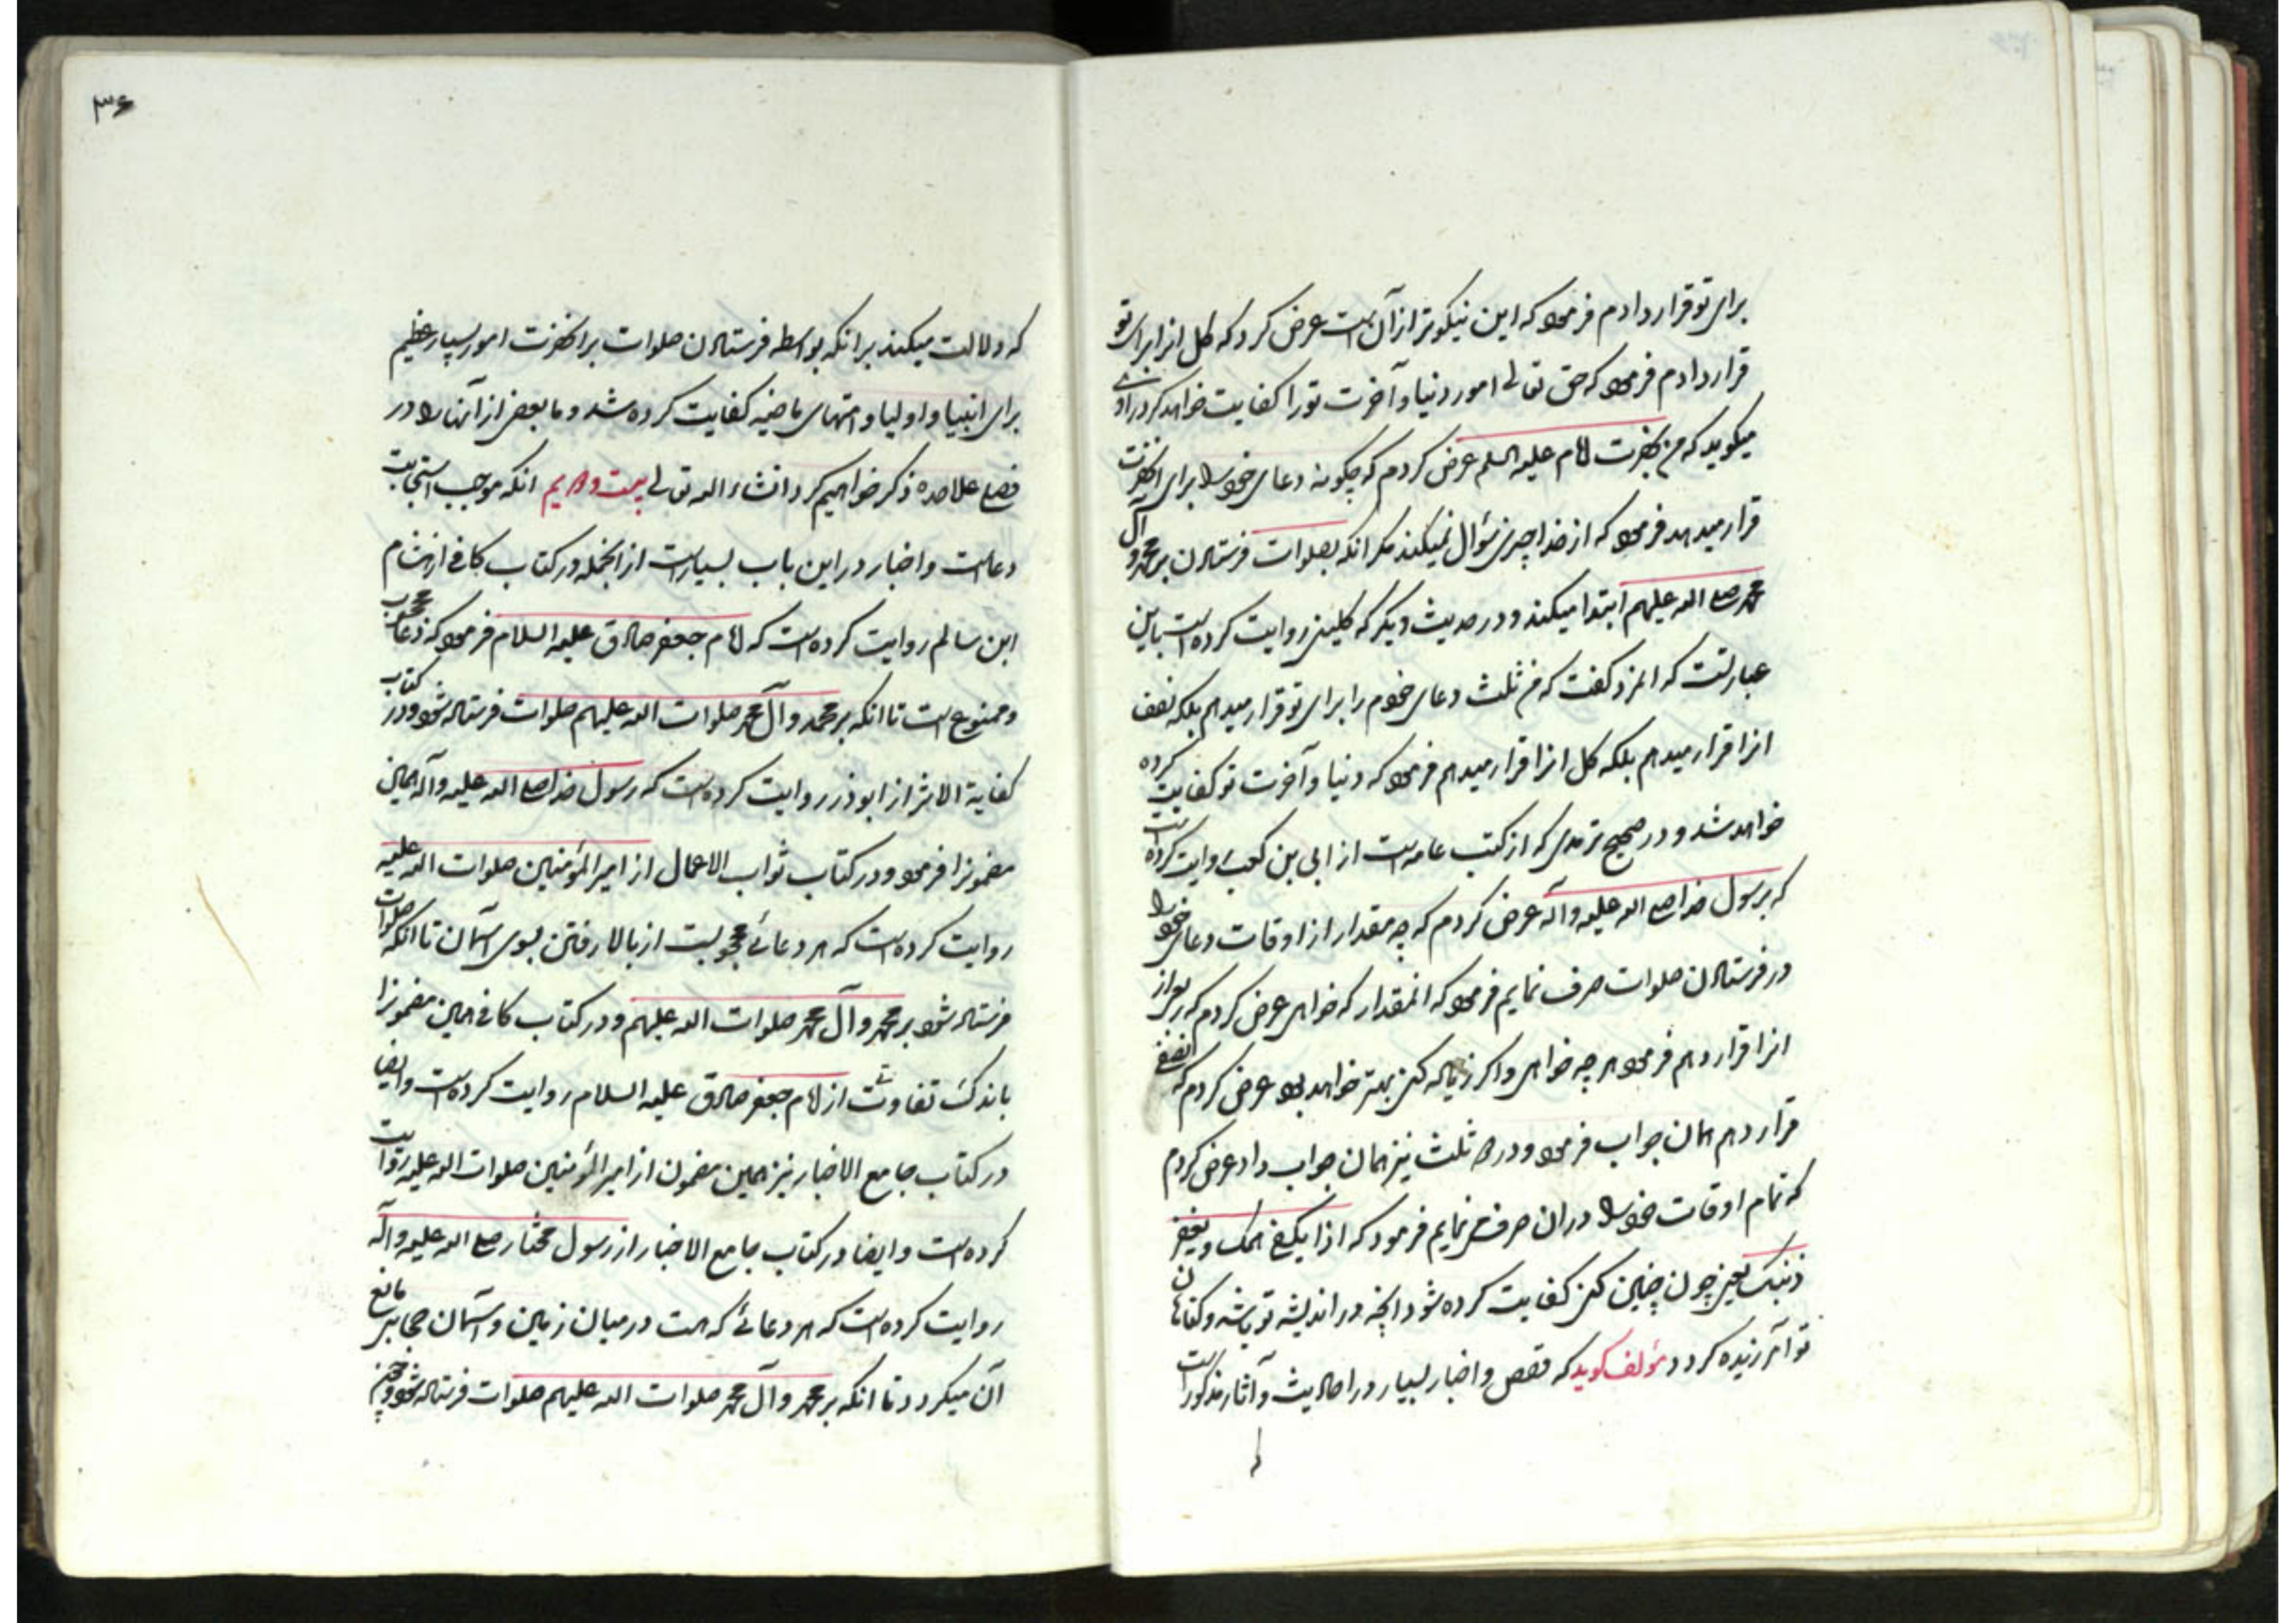 برای تو قرار دادم فرمود که این نیکوتر از آن است عرض کرد که کل انرا برای تو
قرار دادم فرمود که حق تعالی امور دنیا و آخرت تو را کفایت خواهد کرد راوی
میکوید که من بحضرت امام علیه السلم عرض کردم که چکونه دعای خود را برای انحضرت
قرار میدهد فرمود که از خدا چیزی سؤال نمیکند مکر انکه بصلوات فرستادن بر محمد و آل
محمد صلی الله علیهم ابتدا میکند و در حدیث دیکر که کلینی روایت کرده است باین
عبارتست که انمرد کفت که من ثلث دعای خودم را برای تو قرار میدهم بلکه نصف
انرا قرار میدهم بلکه کل انرا قرار میدهم فرمود که دنیا و آخرت تو کفایت کرده
خواهد شد و در صحیح ترمدی که از کتب عامه است از ابی بن کعب روایت کرده است
که برسول خدا صلی الله علیه و آله عرض کردم که چه مقدار از اوقات دعای خود را
در فرستادن صلوات صرف نمایم فرمود که انمقدار که خواهی عرض کردم که ربع از
انرا قرار دهم فرمود هر چه خواهی و اکر زیاده کنی بهتر خواهد بود عرض کردم که نصفی
قرار دهم همان جواب فرمود و در دو ثلث نیز همان جواب داد عرض کردم
که تمام اوقات خود را در ان صرف نمایم فرمود که اذا یکفی همک و یغفر
ذنبک یعنی چون چنین کنی کفایت کرده شود انچه در اندیشه تو باشد و کناهان
تو آمرزیده کردد مؤلف کوید که قصص و اخبار بسیار در احادیث و آثار مذکور است
که
۳۶
که دلالت میکند بر انکه بواسطه فرستادن صلوات بر انحضرت امور بسیار عظیم
برای انبیا و اولیا و امتهای ماضیه کفایت کرده شد و ما بعضی از انها را در
فصلی علاحده ذکر خواهیم کرد انشاء الله تعالی بیست و دویم انکه موجب استجابت
دعاست و اخبار در این باب بسیار است از انجمله در کتاب کافی از هشام
ابن سالم روایت کرده است که امام جعفر صادق علیه السلام فرمود که دعا محجوب
و ممنوع است تا انکه بر محمد و آل محمد صلوات الله علیهم صلوات فرستاده شود و در کتاب
کفایة الاثر از ابوذر روایت کرده است که رسول خدا صلی الله علیه و آله همین
مضمونرا فرمود و در کتاب ثواب الاعمال از امیر المؤمنین صلوات الله علیه
روایت کرده است که هر دعائی محجوبست از بالا رفتن بسوی آسمان تا انکه صلوات
فرستاده شود بر محمد و آل محمد صلوات الله علیهم و در کتاب کافی همین مضمونرا
باندک تفاوتی از امام جعفر صادق علیه السلام روایت کرده است و ایضا
در کتاب جامع الاخبار نیز همین مضمون از امیر المؤمنین صلوات الله علیه روایت
کرده است و ایضا در کتاب جامع الاخبار از رسول مختار صلی الله علیه و آله
روایت کرده است که هر دعائی که هست در میان زمین و آسمان حجابی مانع
آن میکردد تا انکه بر محمد و آل محمد صلوات الله علیهم صلوات فرستاده شود